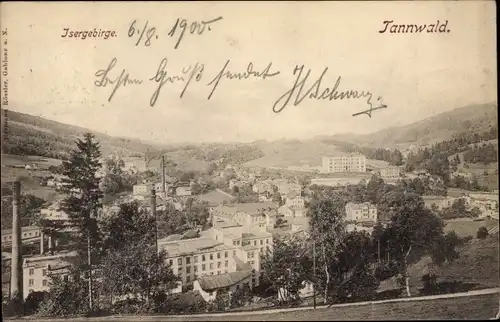 Isergebirge.
6/8 1900.
Tannwald.
Besten Gruß sendet HSchwarz
Kössler, Gablonz a. N.